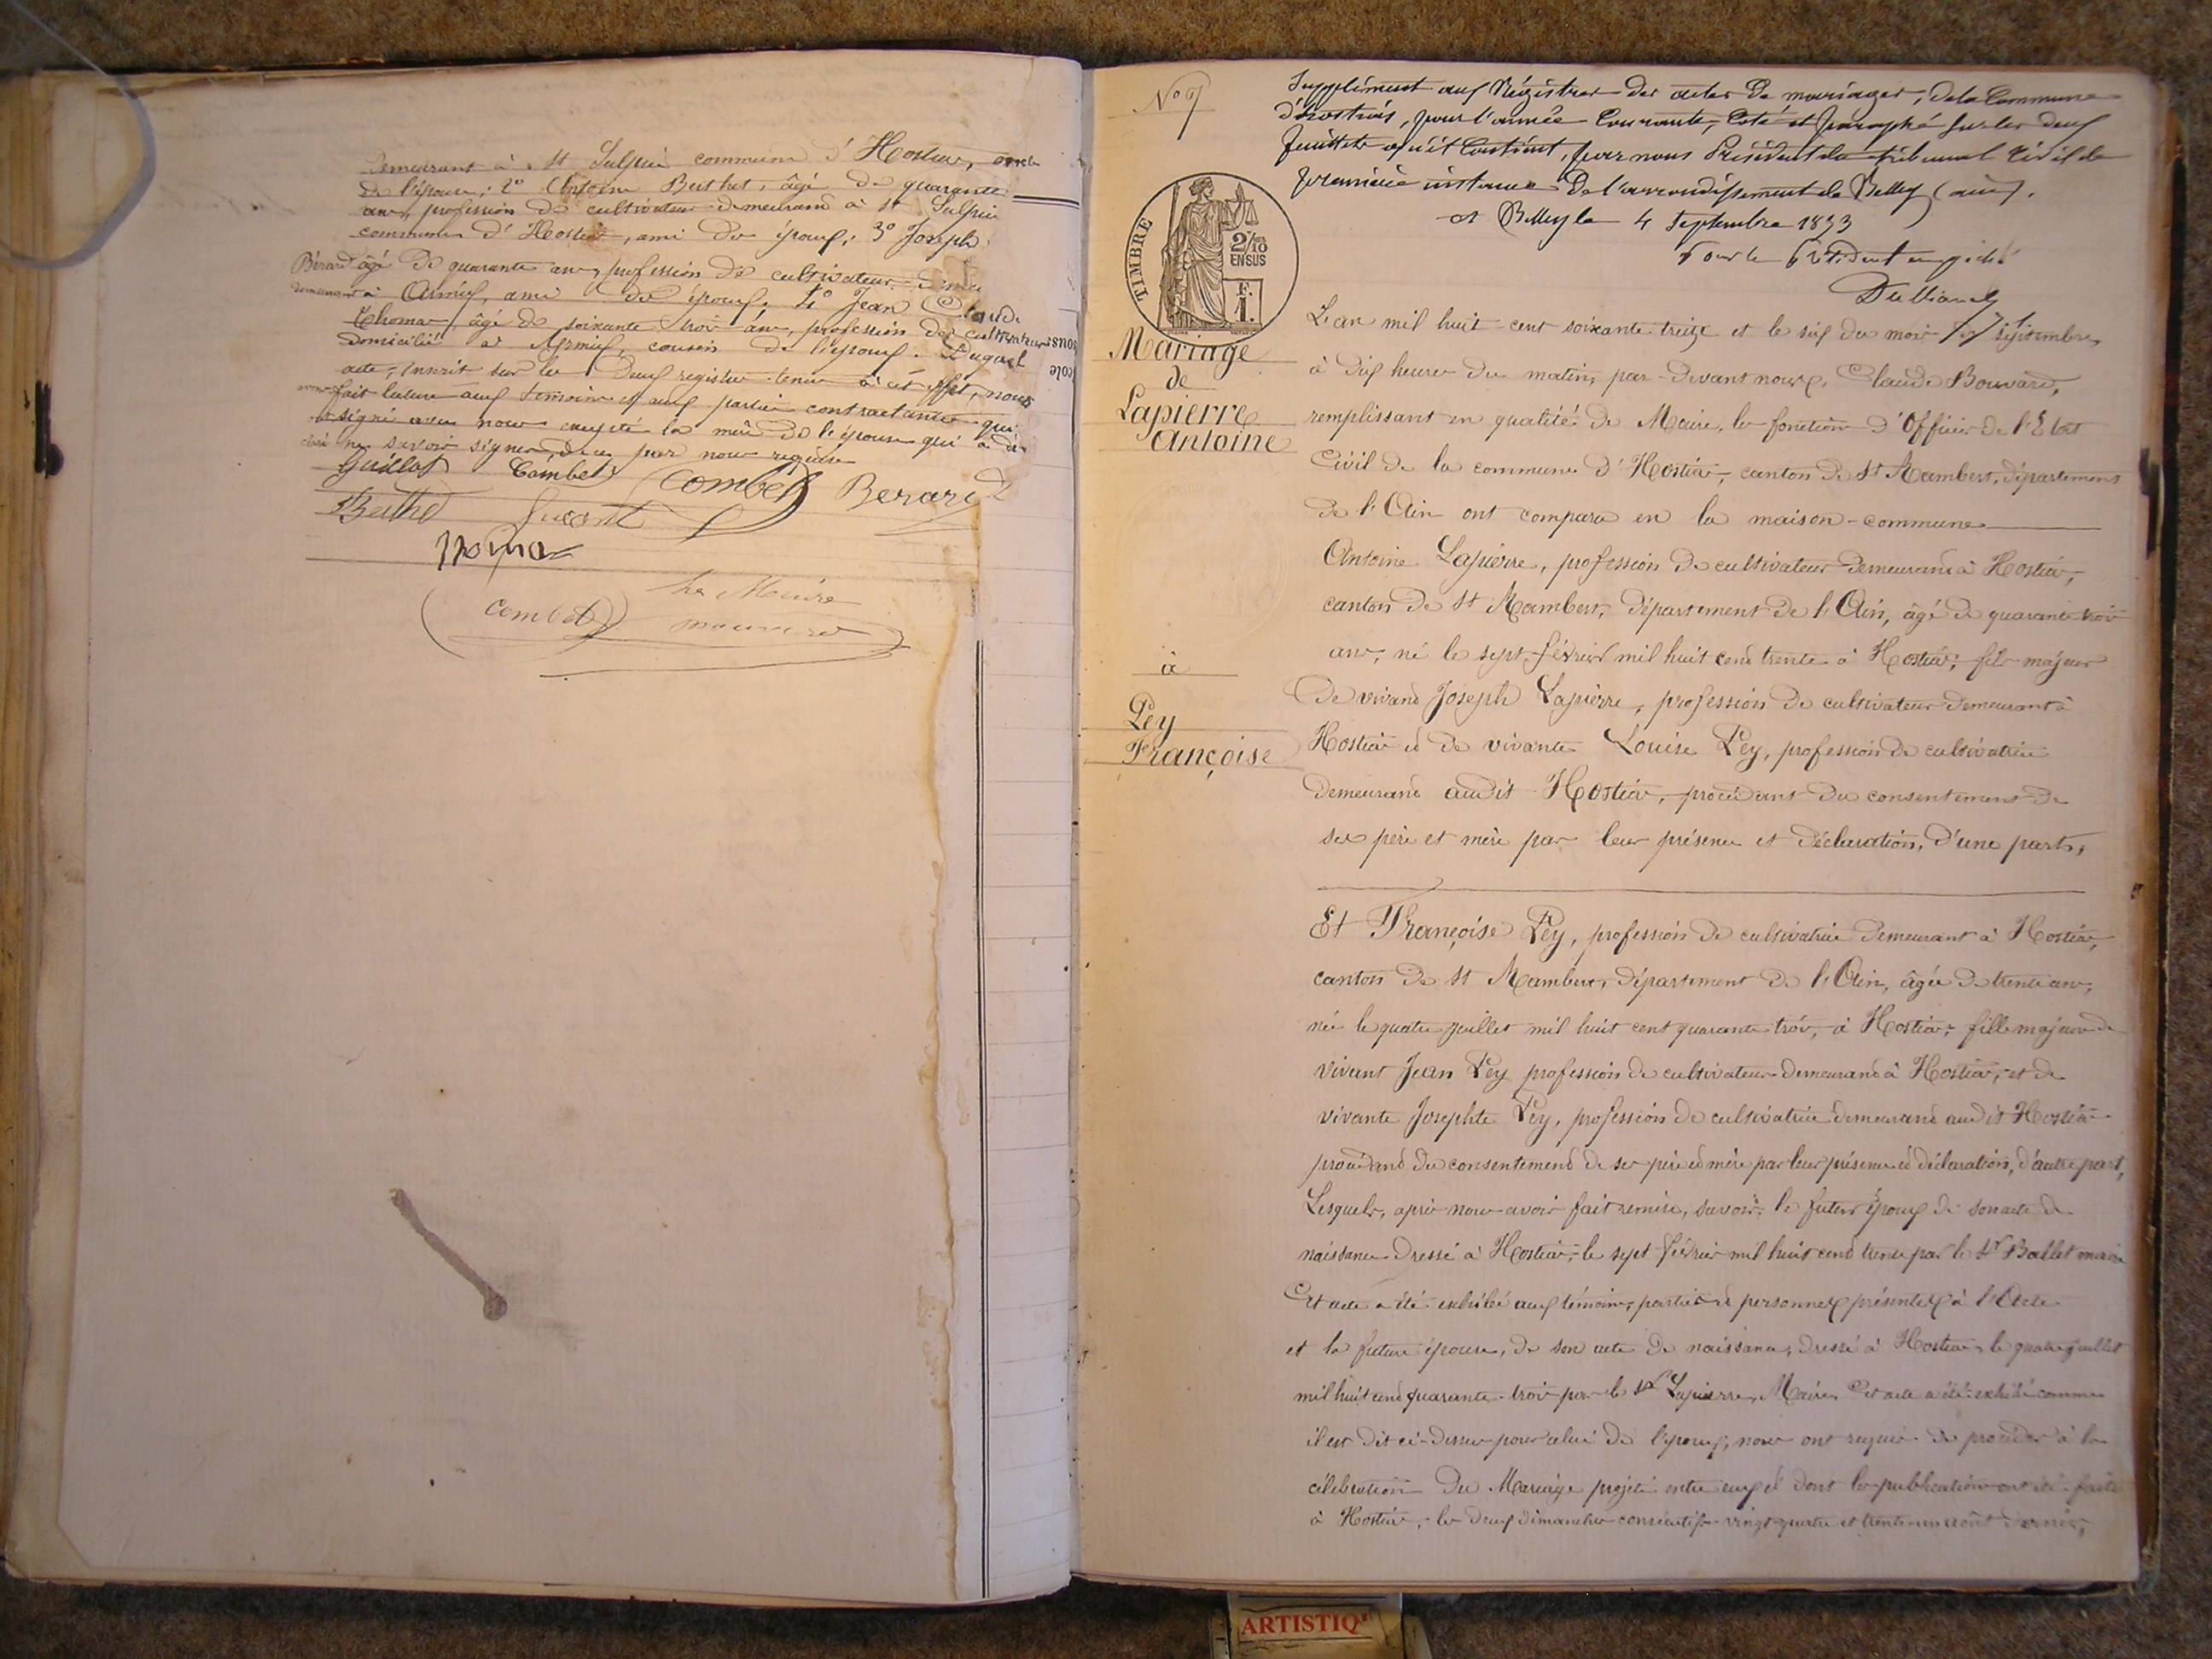 demeurant à St Sulpice commune d'Hostiar, oncle
de l'épouse; 2° Antoine Berthet, âgé de quarante
ans, profession de cultivateur demeurant à St Sulpice
commune d'Hostiar, ami de époux; 3° Joseph
Bérard âgé de quarante ans, profession de cultivateur
demeurant à Armix, ami de époux, 4° Jean Claude
Thomas, âgé de soixante trois ans, profession de cultivateur
domicilié à Armix, cousin de l'époux. Duquel
acte, inscrit sur les deux registres tenus à cet effet, nous
avons fait lecture aux témoins et aux parties contractantes qui
ont signé avec nous excepté la mère de l'épouse qui a dé-
claré ne savoir signer de ce par nous requise
Guillot Combet Combet Berard
Berthet
Thomas
Le Maire
Combet
N° 7
Supplément aux Régistres des actes de mariages, de la Commune
d'hostias, pour l'année Courante, Coté et paraphé sur les deux
feuillets qu'il Contient, par nous Président du tribunal Civil de
première instance de l'arrondissement de Belley (ain).
à Belley le 4 Septembre 1873
Pour le Président empêché
TIMBRE
2/10
EN SUS
F.
1.
Mariage
de
Lapierre
Antoine
à
Pey
Françoise
L'an mil huit cent soixante treize et le six du mois de septembre,
à dix heures du matin, par-devant nous, Claude Bouvard,
remplissant en qualité de Maire, les fonctions d'Officier de l'Etat
Civil de la commune d'Hostiar, canton de St Rambert, département
de l'Ain ont comparu en la maison-commune
Antoine Lapierre, profession de cultivateur demeurant à Hostiar,
canton de St Rambert, département de l'Ain, âgé de quarante trois
ans, né le sept février mil huit cent trente à Hostiar; fils majeur
de vivant Joseph Lapierre, profession de cultivateur demeurant à
Hostiar et de vivante Louise Pey, profession de cultivatrice
demeurant audit Hostiar, procédant du consentement de
ses père et mère par leur présence et déclaration, d'une part,
Et Françoise Pey, profession de cultivatrice demeurant à Hostiar,
canton de St Rambert, département de l'Ain, âgée de trente ans,
née le quatre juillet mil huit cent quarante trois, à Hostiar; fille majeure de
vivant Jean Pey profession de cultivateur demeurant à Hostiar, et de
vivante Josephte Pey, profession de cultivatrice demeurant audit Hostiar
procédant du consentement de ses père et mère par leur présence et déclaration, d'autre part,
Lesquels, après nous avoir fait remise, savoir: le futur époux de son acte de
naissance dressé à Hostiar, le sept février mil huit cent trente par le Sr Ballet maire
Cet acte a été exhibé aux témoins, parties et personnes présentes à l'Acte
et la future épouse, de son acte de naissance, dressé à Hostiar, le quatre juillet
mil huit cent quarante-trois par le Sr Lapierre, Maire, Cet acte a été exhibé comme
il est dit ci-dessus pour celui de l'époux, nous ont requis de procéder à la
célébration du Mariage projeté entre eux et dont les publications ont été faites
à Hostiar, les deux dimanches consécutifs vingt-quatre et trente-un août dernier,
ARTISTIQ